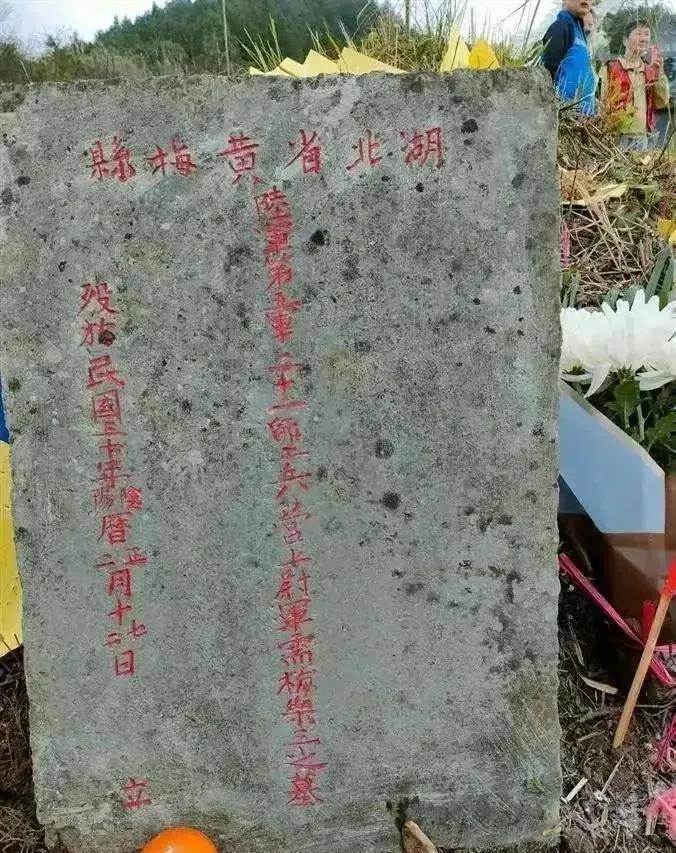 湖北省黃梅縣
陸軍第五軍二十一師工兵營上尉軍需梅樂三之墓
歿於民國三十年陰陽曆正二月十七二日
立